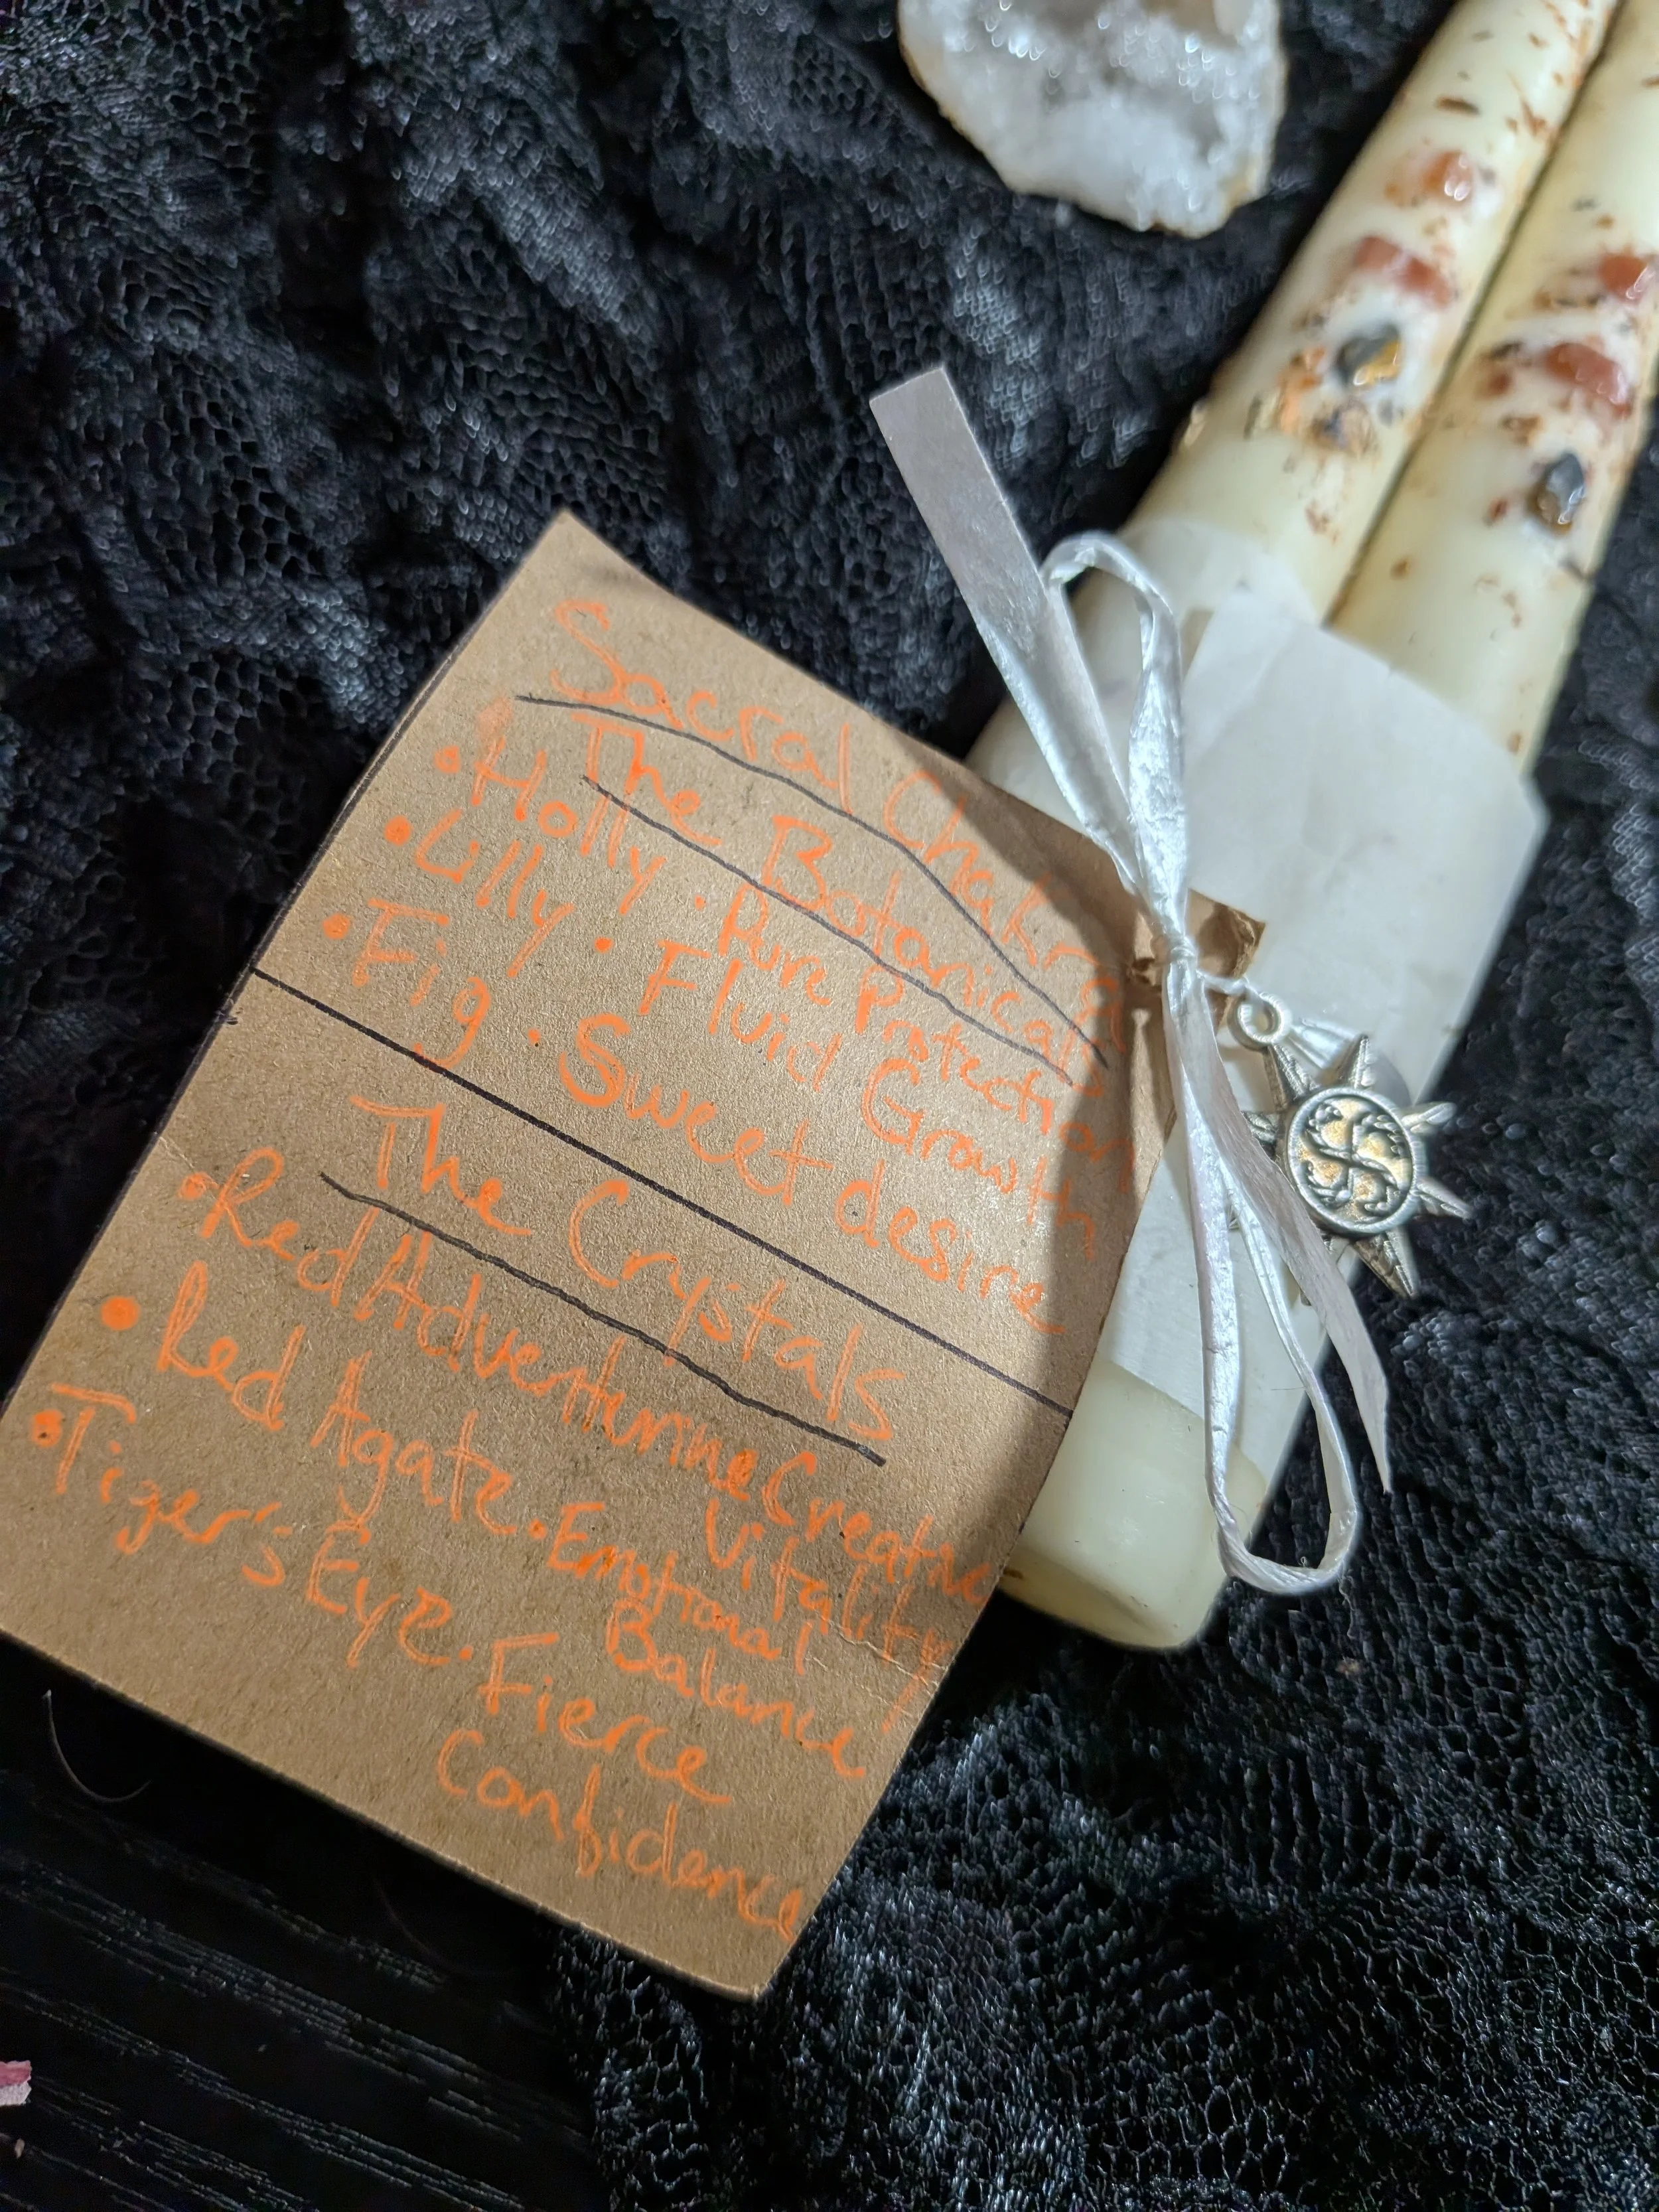 Sacral Chakra
The Botanicals
• Holly • Pure Protection
• Lilly • Fluid Growth
• Fig • Sweet desire
The Crystals
• Red Adventurine Creative
Vitality
• Red Agate • Emotional
Balance
• Tiger's Eye • Fierce
Confidence